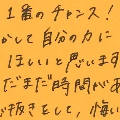 1番のチャンス!
かして自分の力に
ほしいと思います
だまだ時間があ
ご抜きをして、悔い